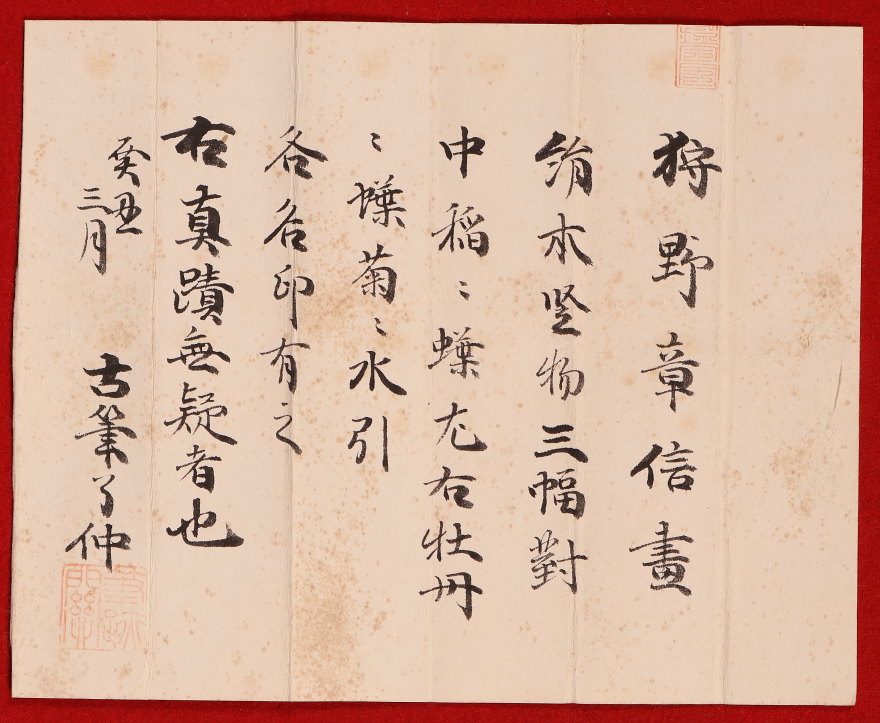 狩野章信畫
絹本竪物三幅對
中稲ニ蝶左右牡丹
ニ蝶菊ニ水引
各名印有之
右真蹟無疑者也
癸丑
三月
古筆了仲